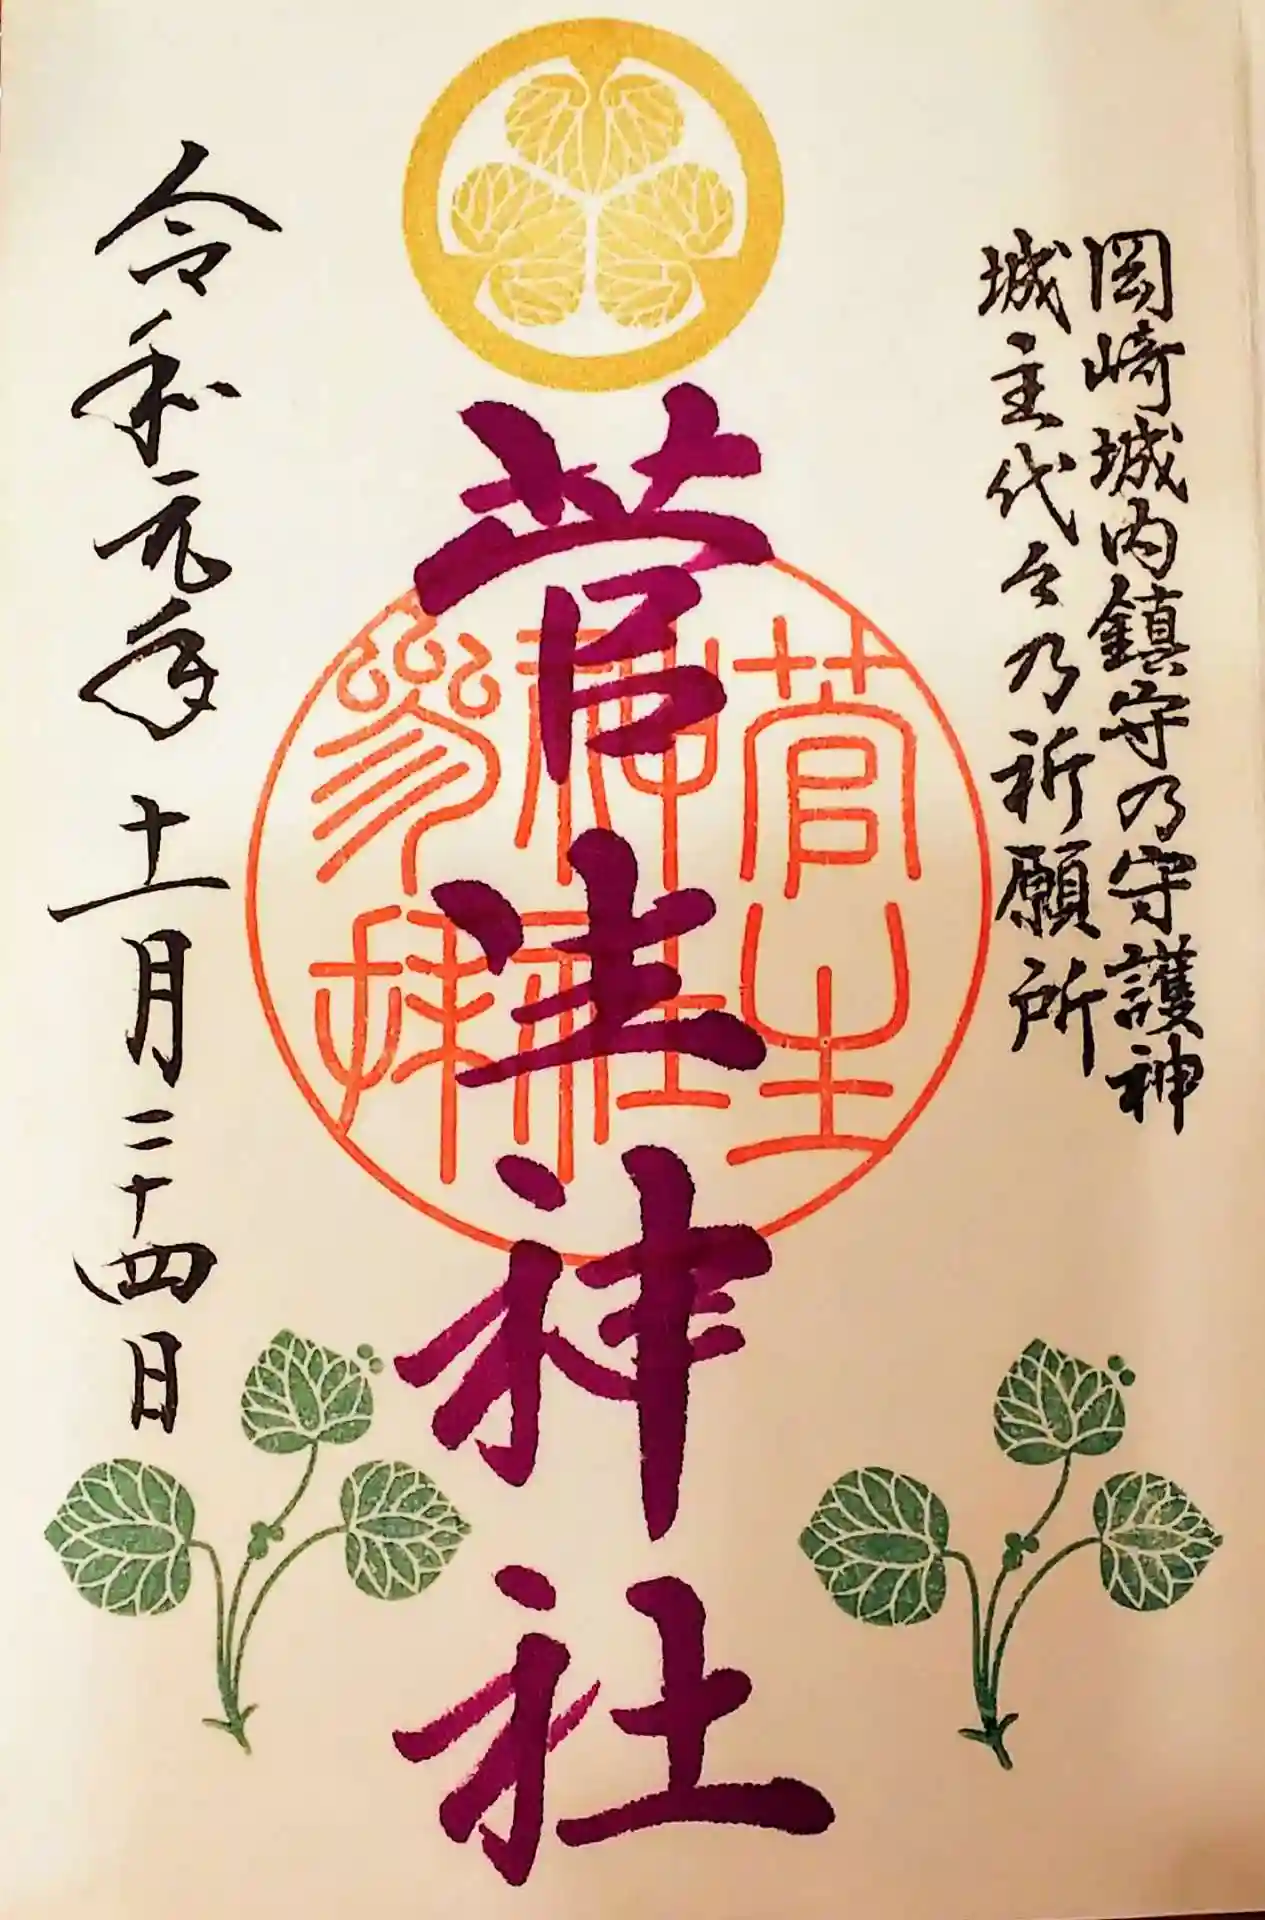 岡崎城内鎮守乃守護神
城主代々乃祈願所
菅生神社
菅生
神社
参拝
令和元年十一月二十四日